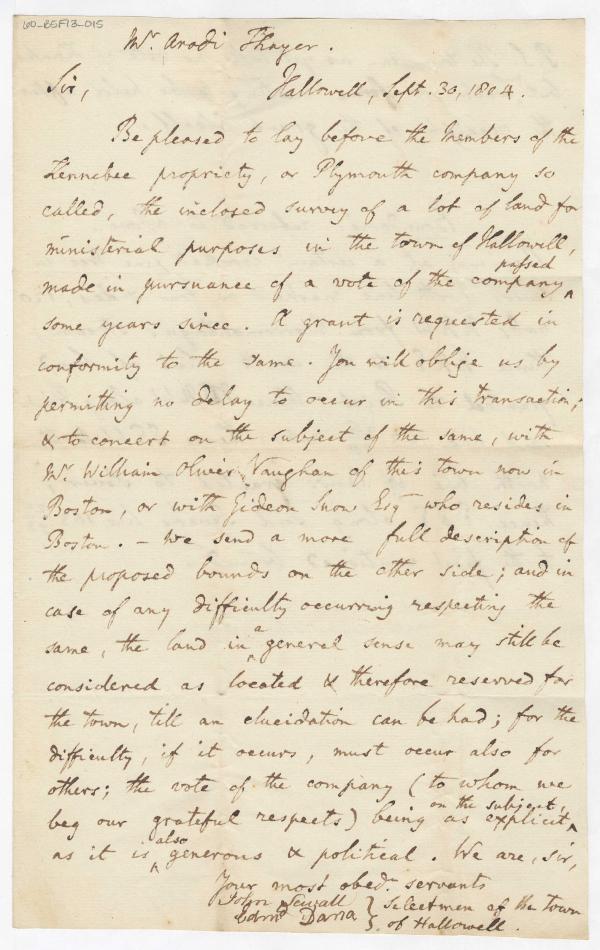 60_B5F13_015
Mr. Arodi Thayer.
Sir, Hallowell, Sept. 30, 1804.
Be pleased to lay before the Members of the
Kennebec propriety, or Plymouth company so
called, the inclosed survey of a lot of land for
ministerial purposes in the town of Hallowell,
made in pursuance of a vote of the company ^ passed
some years since. A grant is requested in
conformity to the same. You will oblige us by
permitting no delay to occur in this transaction;
& to concert on the subject of the same, with
Mr. William Oliver Vaughan of this town now in
Boston, or with Gideon Snow Esq who resides in
Boston. – We send a more full description of
the proposed bounds on the other side; and in
case of any difficulty occurring respecting the
same, the land in ^ a general sense may still be
considered as located & therefore reserved for
the town, till an elucidation can be had; for the
difficulty, if it occurs, must occur also for
others; the vote of the company (to whom we
beg our grateful respects) being as explicit ^ on the subject,
as it is ^ also generous & political. We are, sir,
Your most obedt. servants
John Sewall } Selectmen of the town
Edmd. Dana } of Hallowell.